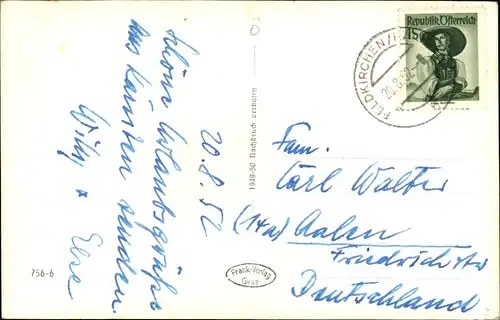 20.8.52
Schöne Urlaubsgrüße
aus Kärnten senden
Willy + Else
756-6
1949-50 Nachdruck verboten
Frank-Verlag
Graz
Republik Österreich
FELDKIRCHEN
20.8.52
Fam.
Carl Walter
(14a) Aalen
Friedrich
Deutschland